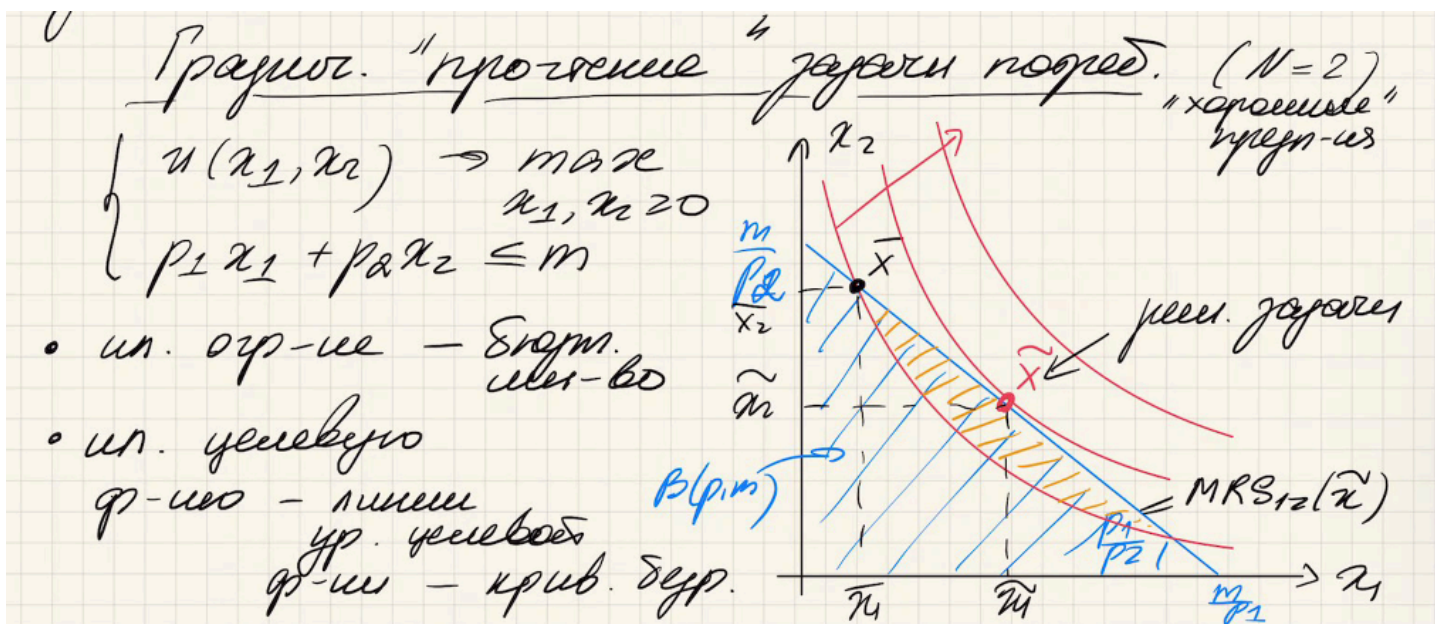 Графич. "прочтение" задачи потреб. (N=2)
"хорошие"
предп-ия
u(x₁, x₂) → max
x₁, x₂ ≥ 0
p₁x₁ + p₂x₂ ≤ m
• ил. огр-ие — бюдж.
мн-во
• ил. целевую
ф-ию — линии
ур. целевой
ф-ии — крив. безр.
x₂
m/p₂
x̄
x̄₂
x̃
реш. задачи
x̃₂
B(p,m)
MRS₁₂(x̃)
p₁/p₂
x̄₁
x̃₁
m/p₁
x₁